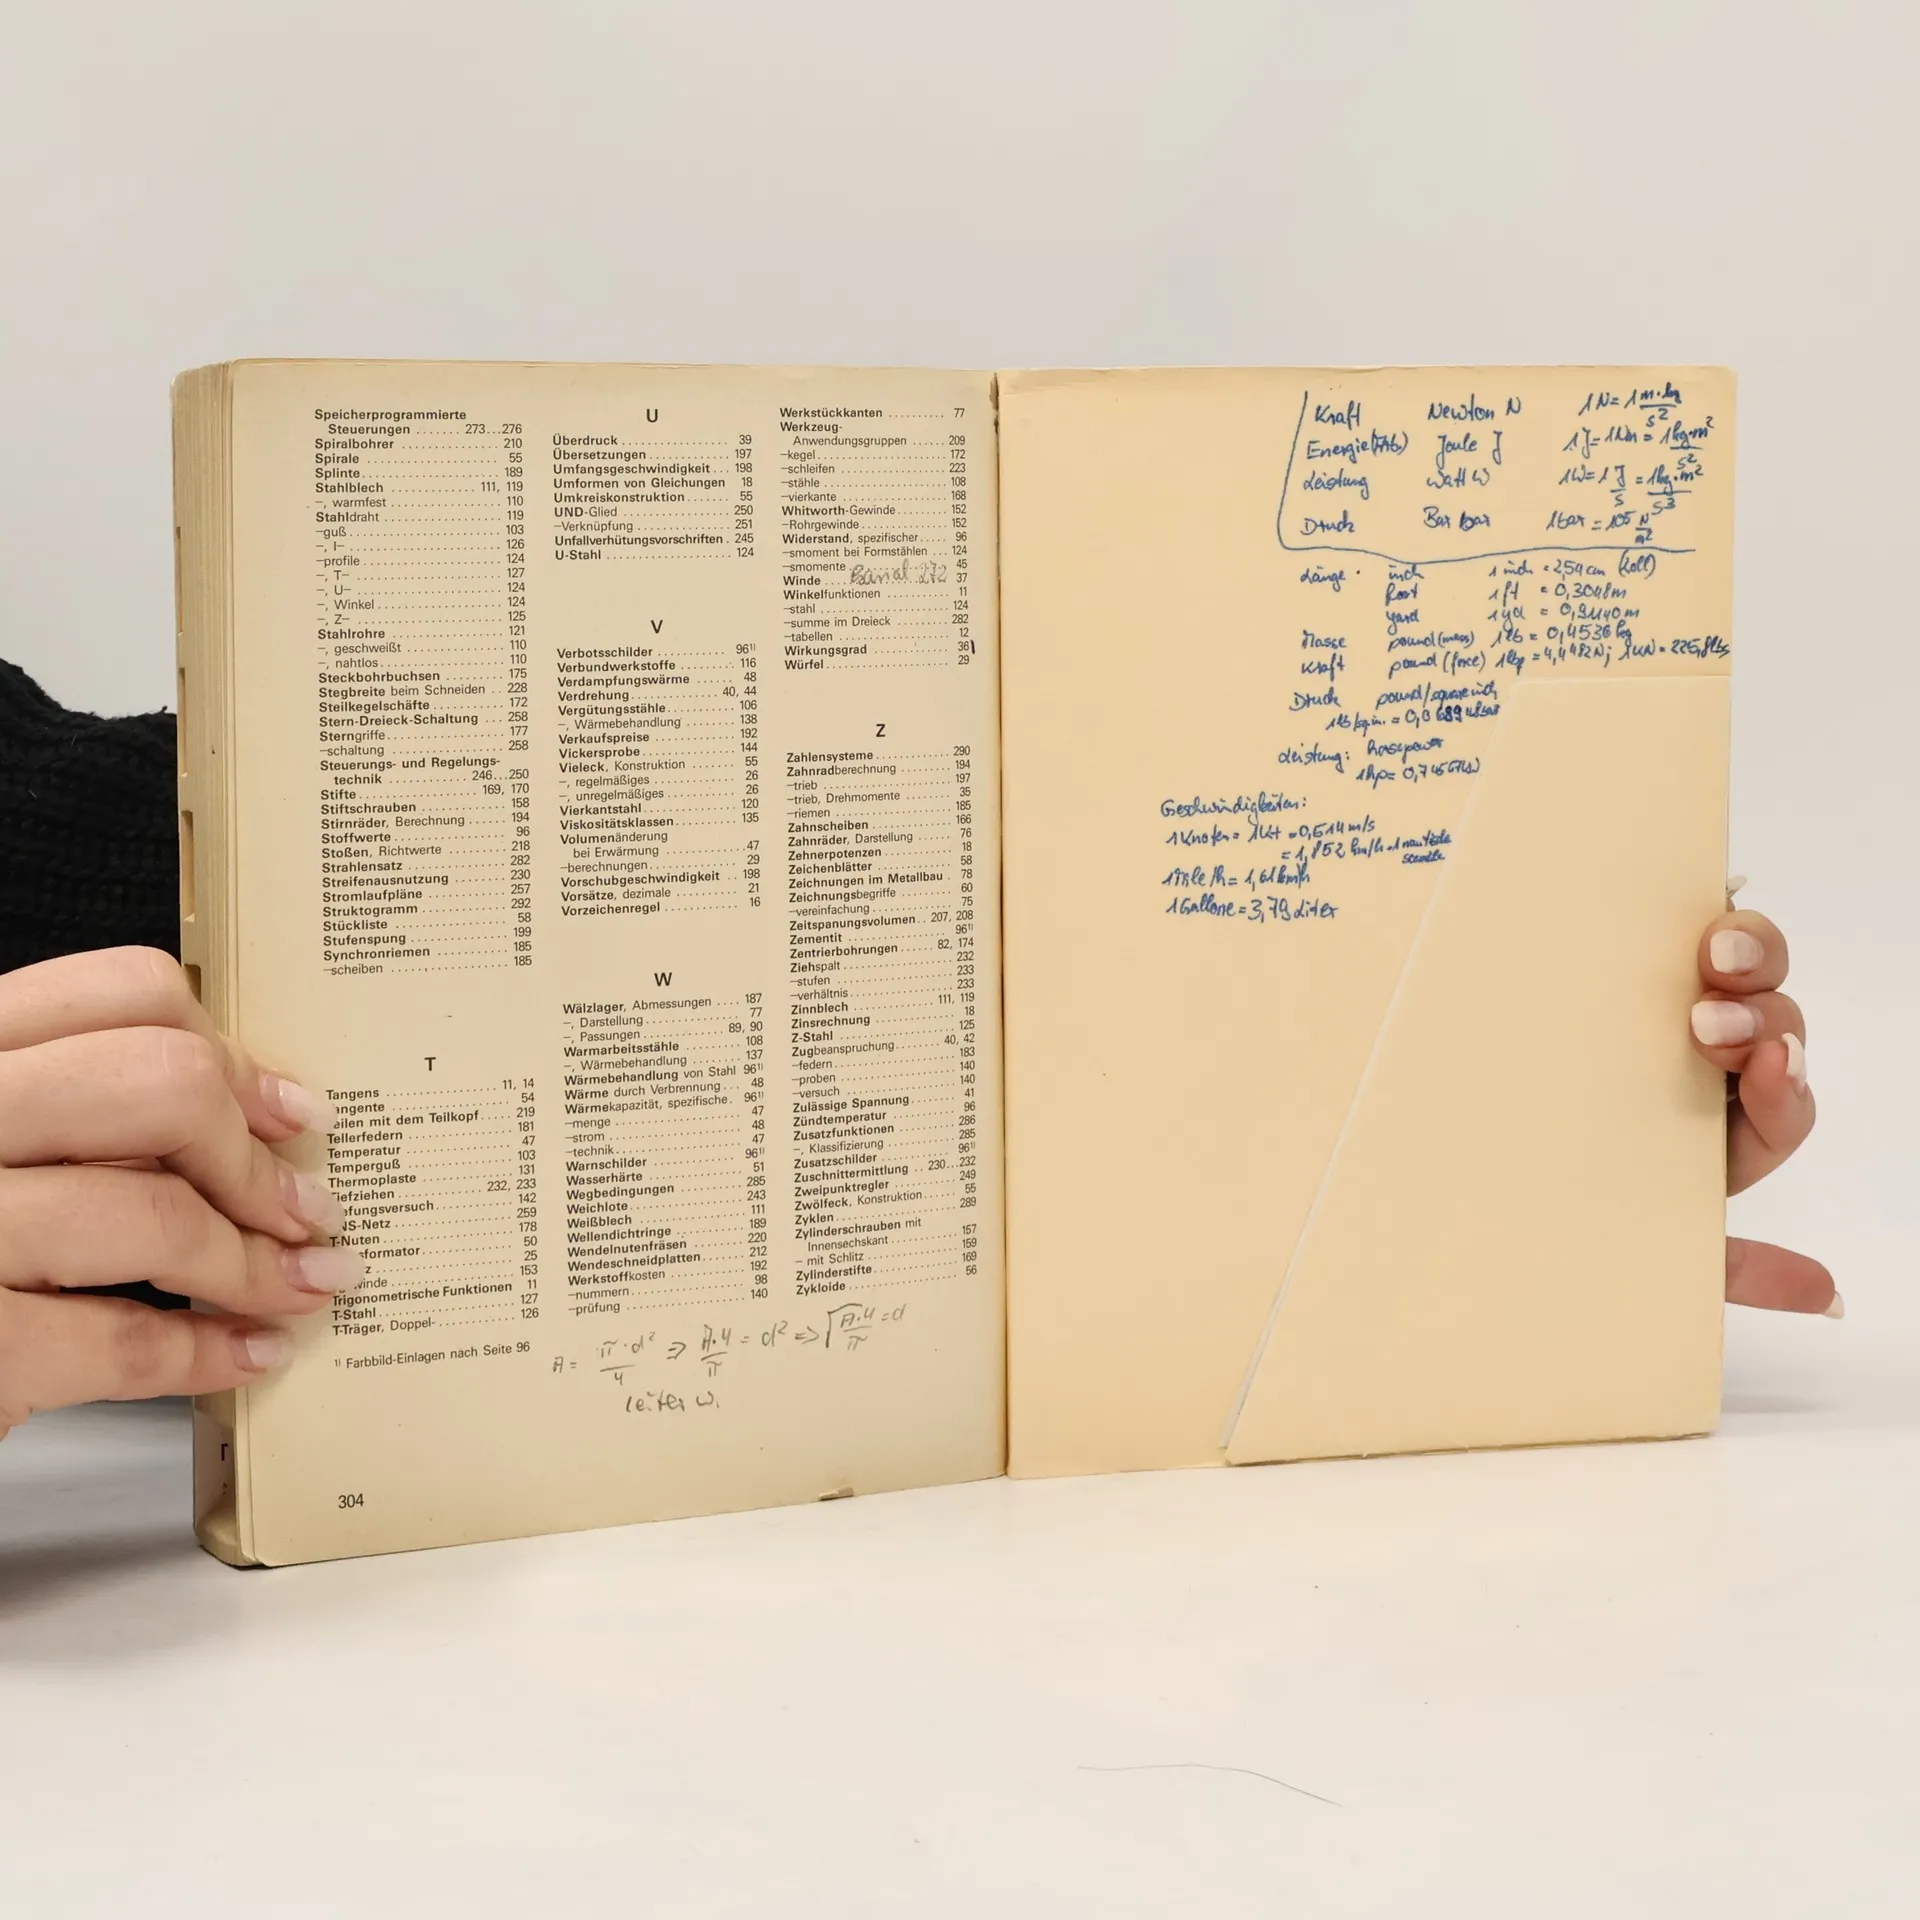 Speicherprogrammierte
Steuerungen ....... 273...276
Spiralbohrer ................. 210
Spirale ........................ 55
Splinte ....................... 189
Stahlblech ............ 111, 119
–, warmfest ................ 110
Stahldraht ................... 119
–guß .......................... 103
–, I– .......................... 126
–profile ...................... 124
–, T– ......................... 127
–, U– ......................... 124
–, Winkel .................... 124
–, Z– ......................... 125
Stahlrohre ................... 121
–, geschweißt .............. 110
–, nahtlos ................... 110
Steckbohrbuchsen ......... 175
Stegbreite beim Schneiden .. 228
Steilkegelschäfte ........... 172
Stern-Dreieck-Schaltung ... 258
Sterngriffe ................... 177
–schaltung .................. 258
Steuerungs- und Regelungs-
technik ........... 246...250
Stifte .................. 169, 170
Stiftschrauben .............. 158
Stirnräder, Berechnung ...... 194
Stoffwerte .................... 96
Stoßen, Richtwerte ......... 218
Strahlensatz ................. 282
Streifenausnutzung ......... 230
Stromlaufpläne .............. 257
Struktogramm ............... 292
Stückliste .................... 58
Stufenspung ................. 199
Synchronriemen ............. 185
–scheiben ................... 185
T
Tangens ................ 11, 14
angente ...................... 54
eilen mit dem Teilkopf ..... 219
Tellerfedern ................. 181
Temperatur .................. 47
Temperguß .................. 103
Thermoplaste ............... 131
iefziehen ............ 232, 233
efungsversuch .............. 142
NS-Netz ..................... 259
T-Nuten ..................... 178
sformator ................... 50
z ............................. 25
winde ....................... 153
Trigonometrische Funktionen 11
T-Stahl ...................... 127
T-Träger, Doppel- .......... 126
1) Farbbild-Einlagen nach Seite 96
U
Überdruck ................... 39
Übersetzungen .............. 197
Umfangsgeschwindigkeit ... 198
Umformen von Gleichungen 18
Umkreiskonstruktion ....... 55
UND-Glied .................. 250
–Verknüpfung .............. 251
Unfallverhütungsvorschriften . 245
U-Stahl ..................... 124
V
Verbotsschilder ............ 96¹⁾
Verbundwerkstoffe ......... 116
Verdampfungswärme ...... 48
Verdrehung ............ 40, 44
Vergütungsstähle .......... 106
–, Wärmebehandlung ...... 138
Verkaufspreise ............. 192
Vickersprobe ............... 144
Vieleck, Konstruktion ...... 55
–, regelmäßiges ............ 26
–, unregelmäßiges ......... 26
Vierkantstahl ............... 120
Viskositätsklassen .......... 135
Volumenänderung
bei Erwärmung ............ 47
–berechnungen ............. 29
Vorschubgeschwindigkeit .. 198
Vorsätze, dezimale ........ 21
Vorzeichenregel ............ 16
W
Wälzlager, Abmessungen .... 187
–, Darstellung .............. 77
–, Passungen ........... 89, 90
Warmarbeitsstähle ......... 108
–, Wärmebehandlung ...... 137
Wärmebehandlung von Stahl 96¹⁾
Wärme durch Verbrennung ... 48
Wärmekapazität, spezifische . 96¹⁾
–menge ..................... 47
–strom ...................... 48
–technik .................... 47
Warnschilder .............. 96¹⁾
Wasserhärte ................ 51
Wegbedingungen .......... 285
Weichlote .................. 243
Weißblech ................. 111
Wellendichtringe .......... 189
Wendelnutenfräsen ........ 220
Wendeschneidplatten ...... 212
Werkstoffkosten ........... 192
–nummern .................. 98
–prüfung ................... 140
Werkstückkanten .......... 77
Werkzeug-
Anwendungsgruppen ...... 209
–kegel ...................... 172
–schleifen .................. 223
–stähle ..................... 108
–vierkante ................. 168
Whitworth-Gewinde ....... 152
–Rohrgewinde ............. 152
Widerstand, spezifischer ..... 96
–smoment bei Formstählen ... 124
–smomente ................. 45
Winde ... 272 37
Winkelfunktionen .......... 11
–stahl ...................... 124
–summe im Dreieck ........ 282
–tabellen ................... 12
Wirkungsgrad .............. 36
Würfel ...................... 29
Z
Zahlensysteme ............. 290
Zahnradberechnung ....... 194
–trieb ...................... 197
–trieb, Drehmomente ...... 35
–riemen .................... 185
Zahnscheiben .............. 166
Zahnräder, Darstellung .... 76
Zehnerpotenzen ........... 18
Zeichenblätter ............. 58
Zeichnungen im Metallbau . 78
Zeichnungsbegriffe ........ 60
–vereinfachung ............ 75
Zeitspanungsvolumen .. 207, 208
Zementit .................. 96¹⁾
Zentrierbohrungen ..... 82, 174
Ziehspalt ................... 232
–stufen ..................... 233
–verhältnis ................. 233
Zinnblech ............. 111, 119
Zinsrechnung .............. 18
Z-Stahl ..................... 125
Zugbeanspruchung .... 40, 42
–federn .................... 183
–proben .................... 140
–versuch ................... 140
Zulässige Spannung ....... 41
Zündtemperatur ........... 96
Zusatzfunktionen .......... 286
–, Klassifizierung .......... 285
Zusatzschilder ............ 96¹⁾
Zuschnittermittlung .. 230...232
Zweipunktregler ........... 249
Zwölfeck, Konstruktion .... 55
Zyklen ..................... 289
Zylinderschrauben mit
Innensechskant ........... 157
– mit Schlitz .............. 159
Zylinderstifte .............. 169
Zykloide .................... 56
A = π·d²/4 ⇒ A·4/π = d² ⇒ √(A·4/π) = d
leiter w.
304
Kraft Newton N 1N = 1 m·kg/s²
Energie(Arb.) Joule J 1J = 1Nm = 1kg·m²/s²
Leistung Watt W 1W = 1 J/s = 1kg·m²/s³
Druck Bar bar 1bar = 10⁵ N/m²
Länge inch 1 inch = 2,54 cm (Zoll)
foot 1ft = 0,3048m
yard 1yd = 0,9140m
Masse pound (mass) 1lb = 0,4536 kg
Kraft pound (force) 1lbf = 4,4482N; 1KN = 225,8lbs
Druck pound/square inch
1lb/sq.in. = 0,0689 48bar
Leistung: horsepower
1hp = 0,7457KW
Geschwindigkeiten:
1Knoten = 1Kt = 0,514m/s
= 1,852 km/h = 1 nautische
1Mile/h = 1,61km/h
1Gallone = 3,79 Liter